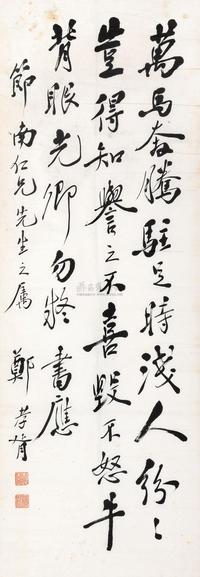 萬馬奔騰駐足時淺人紛〻
豈得知譽之不喜毀不怒牛
背眼光卿勿癡書應
節南仁兄先生之屬
鄭孝胥